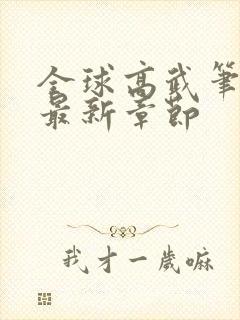 全球高武筆
最新章節
我才一歲嘛